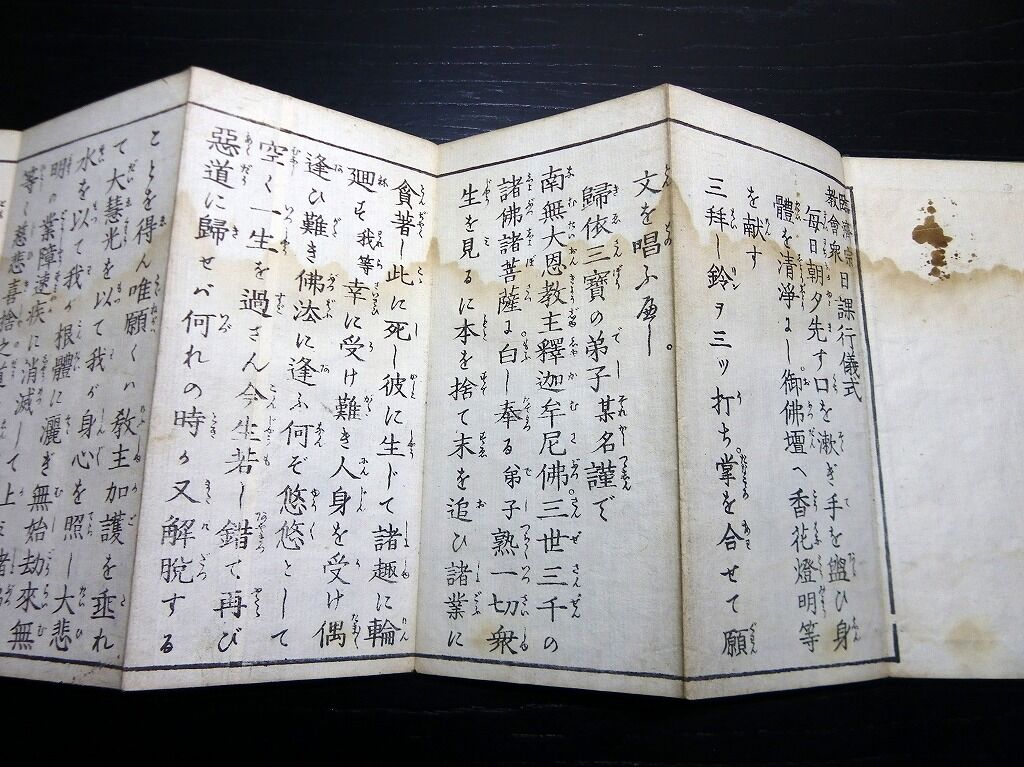 臨濟宗日課行儀式
教會衆
毎日朝夕先す口を漱ぎ手を盥ひ身
體を清淨にし御佛壇へ香花燈明等
を献す
三拜し鈴ヲ三ッ打ち掌を合せて願
文を唱ふべし。
歸依三寶の弟子某名謹で
南無大恩教主釋迦牟尼佛三世三千の
諸佛諸菩薩に白し奉る弟子熟一切衆
生を見るに本を捨て末を追ひ諸業に
貪著し此に死し彼に生じて諸趣に輪
廻す我等幸に受け難き人身を受け偶
逢ひ難き佛法に逢ふ何ぞ悠悠として
空く一生を過さん今生若し錯て再び
惡道に歸せバ何れの時か又解脱する
ことを得ん唯願くハ教主加護を垂れ
て大慧光を以て我が身心を照し大悲
水を以て我が根體に灑ぎ無始劫來無
明の業障速疾に消滅して上
等く慈悲喜捨之道